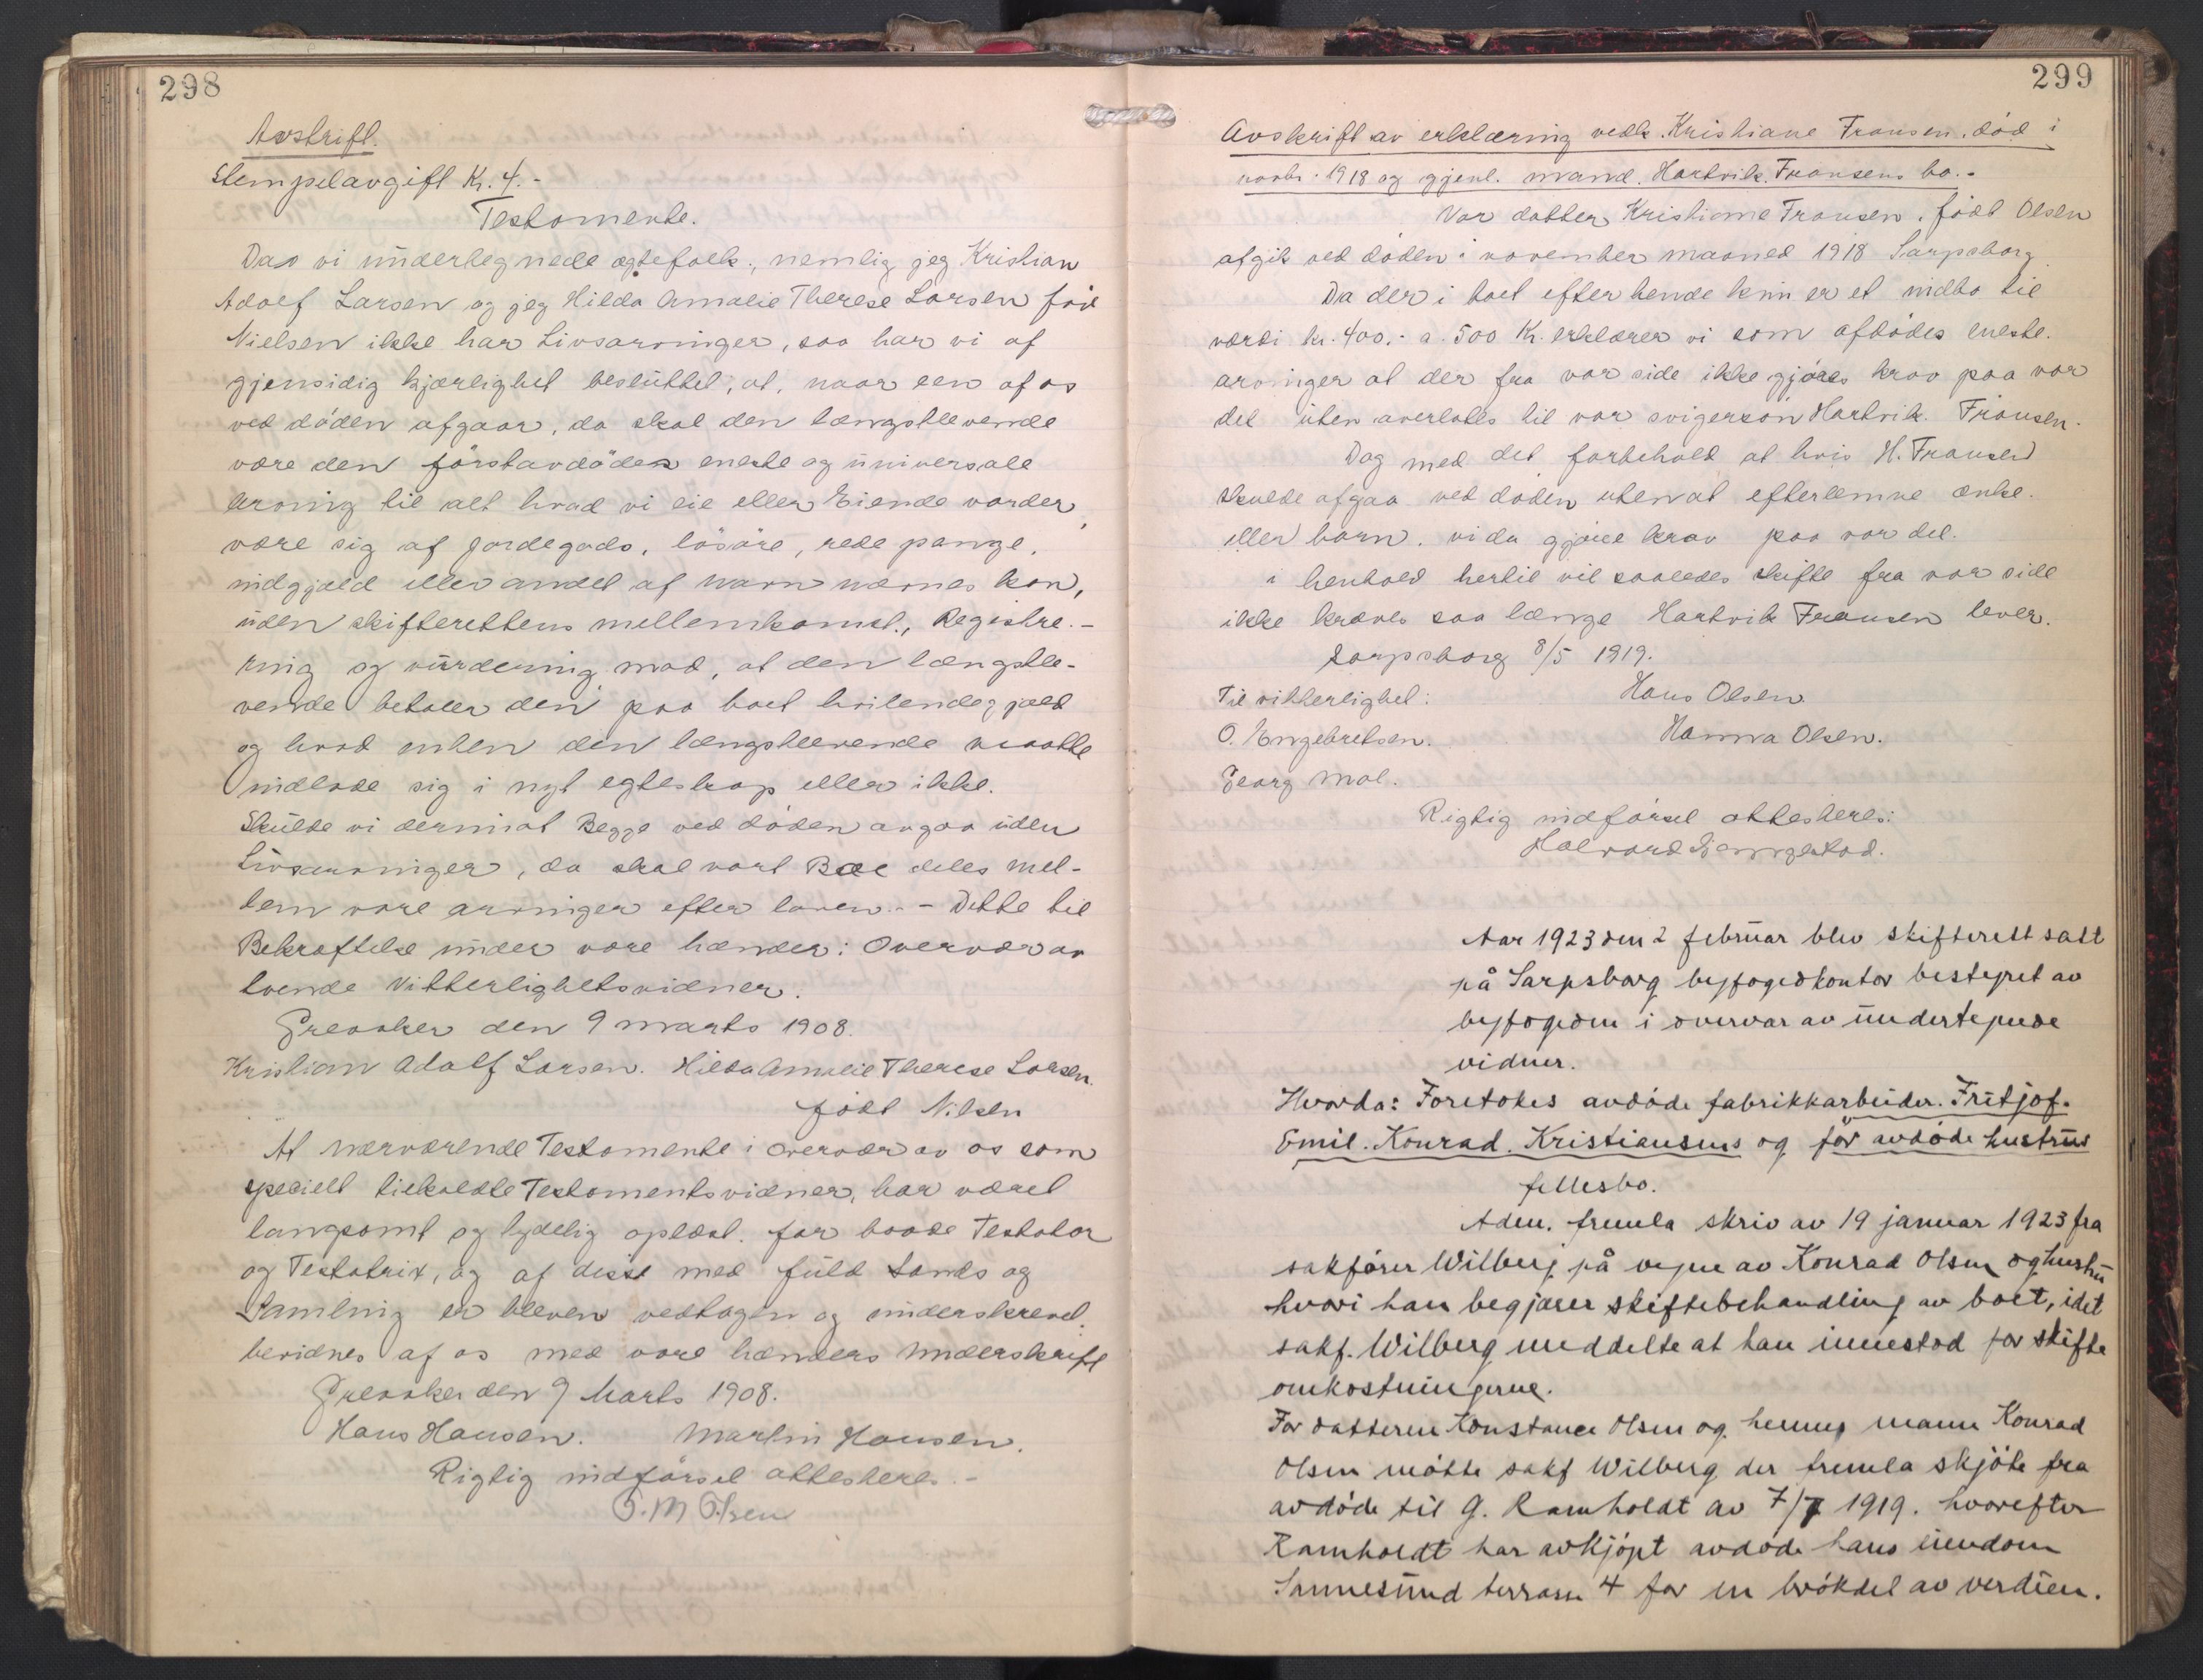 298
Avskrift.
Stempelavgift Kr. 4.-
Testamente.
Da vi undertegnede ægtefolk, nemlig jeg Kristian
Adolf Larsen og jeg Hilda Amalie Therese Larsen fød
Nielsen ikke har Livsarvinger, saa har vi af
gjensidig kjærlighet besluttet, at, naar een af os
ved døden afgaar, da skal den længstlevende
være den førstavdødes eneste og universale
Arving til alt hvad vi eie eller Eiende vorder,
være sig af Jordegods, løsøre, rede penge,
indgjæld eller andet af navn nævnes kan,
uden skifterettens mellemkomst, Registre-
ring og vurdering mod, at den længstle-
vende betaler den paa boet hvilende gjæld
og hvad enten den længstlevende maatte
indlade sig i nyt egteskap eller ikke.
Skulde vi derimot Begge ved døden avgaa uden
Livsarvinger, da skal vort Boe deles mel-
lem vore arvinger efter loven. - Dette til
Bekræftelse under vore hænder: Overvær av
tvende Vitterlighetsvidner.
Greaaker den 9 marts 1908.
Kristian Adolf Larsen. Hilda Amalie Therese Larsen.
født Nilsen
At nærværende Testamente i overvær av os som
specielt tilkaldte Testamentsvidner, har været
langsomt og tydelig oplæst for baade Testator
og Testatrix, og af disse med fuld Sands og
Samling er bleven vedtagen og underskrevet,
bevidnes af os med vore hænders underskrift
Greaaker den 9 Marts 1908.
Hans Hansen. Martin Hansen.
Rigtig indførsel attesteres.-
O. M Olsen
299
Avskrift av erklæring vedk. Kristiane Fransen, død i
novbr. 1918 og gjenl. mand. Hartvik Fransens bo.-
Vor datter Kristiane Fransen, født Olsen
afgik ved døden i november maaned 1918 Sarpsborg
Da der i boet efter hende kun er et indbo til
værdi kr. 400,- a 500 Kr. erklærer vi som afdødes eneste
arvinger at der fra vor side ikke gjøres krav paa vor
del uten overlates til vor svigersøn Hartvik Fransen.
Dog med det forbehold at hvis H. Fransen
skulde afgaa ved døden uten at efterlemne enke
eller barn. vi da gjøre krav paa vor del.
i henhold hertil vil saaledes skifte fra vor side
ikke kræves saa længe Hartvik Fransen lever.
Sarpsborg 8/5 1919.
Til vitterlighet: Hans Olsen
O. Engebretsen. Hanna Olsen.
Georg Mol.
Rigtig indførsel attesteres:
Halvard
Aar 1923 den 2 februar blev skifterett satt
på Sarpsborg byfogedkontor bestyret av
byfogden i overvær av undertegnede
vidner.
Hvorda: Foretokes avdøde fabrikkarbeider. Fritjof.
Emil. Konrad. Kristiansens og før avdøde hustrus
fellesbo.
Adm. fremla skriv av 19 januar 1923 fra
sakfører Wilberg på vegne av Konrad Olsen og hustru
hvori han begjærer skiftebehandling av boet, idet
sakf. Wilberg meddelte at han innestod for skifte
omkostningerne.
For datteren Konstance Olsen og hennes mann Konrad
Olsen møtte sakf Wilberg der fremla skjøte fra
avdøde til G. Ramholdt av 7/7 1919. hvorefter
Ramholdt har avkjøpt avdøde hans eiendom
Sannesund terrasse 4 for en brøkdel av verdien.